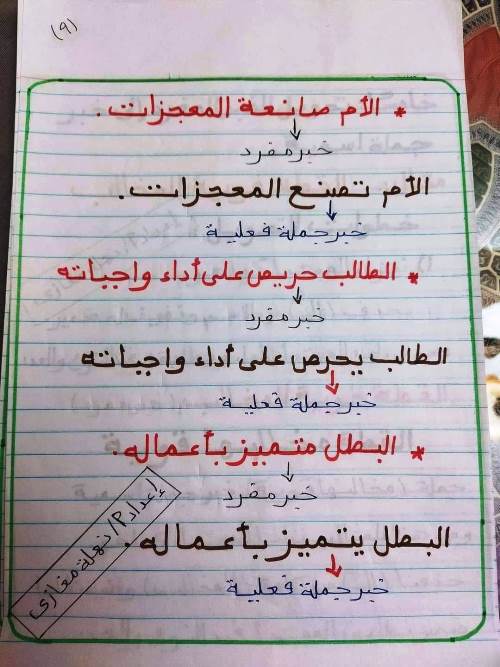 (٩)
* الأم صانعة المعجزات.
خبر مفرد
الأم تصنع المعجزات.
خبر جملة فعلية
* الطالب حريص على أداء واجباته
خبر مفرد
الطالب يحرص على أداء واجباته
خبر جملة فعلية
* البطل متميز بأعماله.
خبر مفرد
البطل يتميز بأعماله.
خبر جملة فعلية
إعداد م/ نهلة مغازى